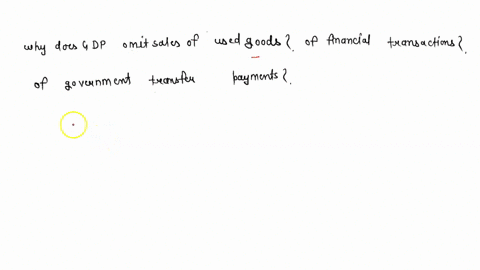 why does GDP omit sales of used goods? of financial transactions?
of government transfer payments?